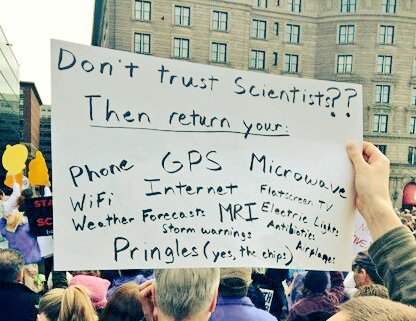 Don't trust Scientists??
Then return your:
Phone GPS Microwave
WiFi Internet Flatscreen TV
Weather Forecasts MRI Electric Lights
Storm warnings Antibiotics
Pringles (yes, the chips) Airplanes
STA